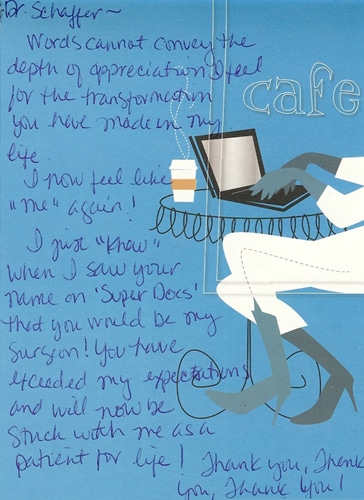 Dr. Schaffer ~
Words cannot convey the
depth of appreciation I feel
for the transformation
you have made in my
life.
I now feel like
"me" again!
I just "knew"
when I saw your
name on 'Super Docs'
that you would be my
surgeon! You have
exceeded my expectations
and will now be
stuck with me as a
patient for life! Thank you, Thank
you, Thank You!
cafe